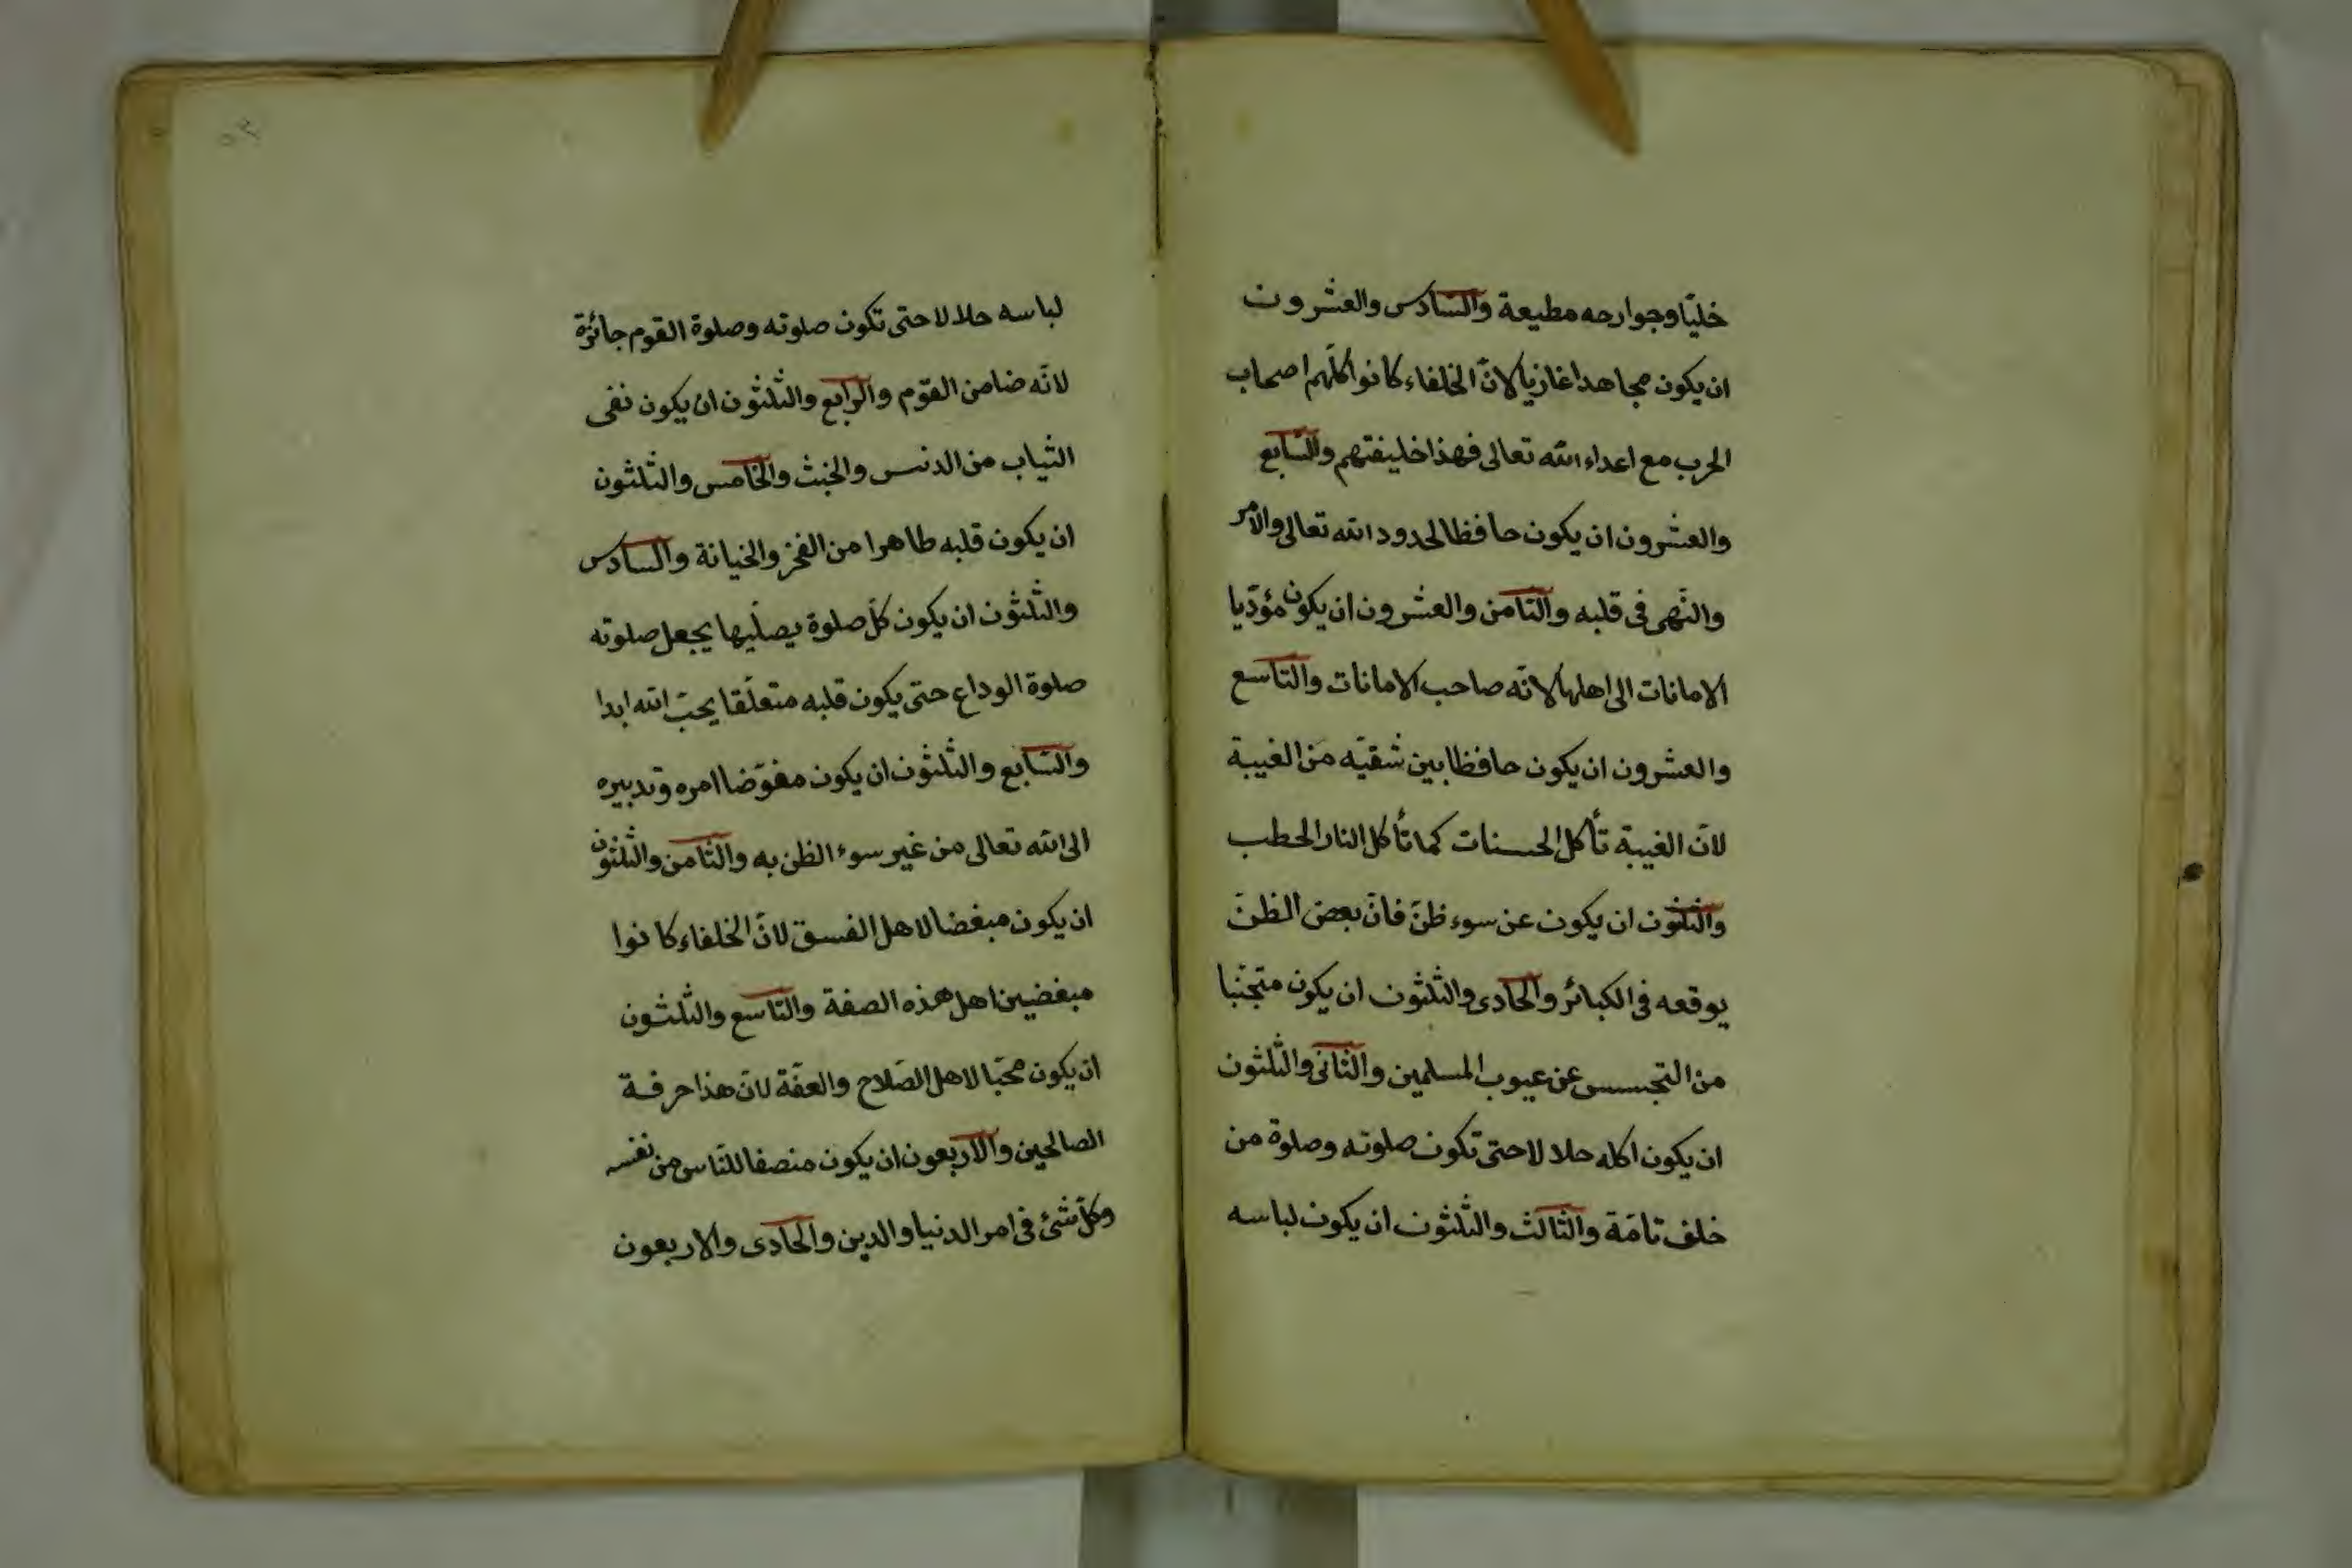 خليّا وجوارحه مطيعة والسّادس والعشرون
ان يكون مجاهدا غازيا لانّ الخلفاء كانوا كلّهم اصحاب
الحرب مع اعداء الله تعالى فهذا خليفتهم والسّابع
والعشرون ان يكون حافظا لحدود الله تعالى والامر
والنّهى فى قلبه والثّامن والعشرون ان يكون مؤدّيا
الامانات الى اهلها لانّه صاحب الامانات والتّاسع
والعشرون ان يكون حافظا بين شقيّه من الغيبة
لانّ الغيبة تأكل الحسنات كما تأكل النار الحطب
والثّلثون ان يكون عن سوء ظنّ فانّ بعض الظنّ
يوقعه فى الكبائر والحادى والثّلثون ان يكون متجنّبا
من التجسس عن عيوب المسلمين والثّانى والثّلثون
ان يكون اكله حلالا حتى تكون صلوته وصلوة من
خلف تامّة والثّالث والثّلثون ان يكون لباسه
لباسه حلالا حتى تكون صلوته وصلوة القوم جائزة
لانّه ضامن القوّم والرّابع والثّلثون ان يكون نقى
الثياب من الدنس والخبث والخامس والثّلثون
ان يكون قلبه طاهرا من الفخر والخيانة والسّادس
والثّلثون ان يكون كلّ صلوة يصلّيها يجعل صلوته
صلوة الوداع حتى يكون قلبه متعلّقا يحبّ الله ابدا
والسّابع والثّلثون ان يكون مفوّضا امره وتدبيره
الى الله تعالى من غير سوء الظن به والثّامن والثّلثون
ان يكون مبغضا لاهل الفسق لانّ الخلفاء كانوا
مبغضين اهل هذه الصفة والتّاسع والثّلثون
ان يكون محبّا لاهل الصّلاح والعفّة لانّ هذا حرفة
الصالحين والاربعون ان يكون منصفا للنّاس من نفسه
وكلّ شئ فى امر الدنيا والدين والحادى والاربعون